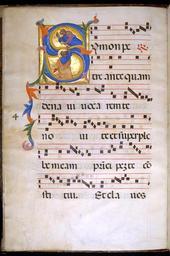 Symon pe
tre anteq uam
de na ui uoca rem te
no ui te et super ple
bem eam prīci pez te cō
sti tui. Et cla ues